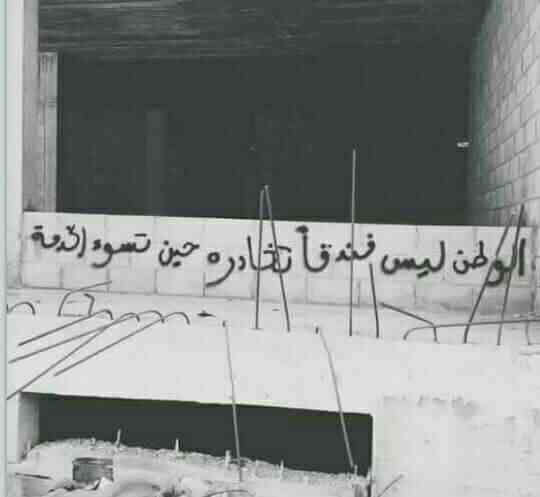 الوطن ليس فندقاً نغادره حين تسوء الخدمة